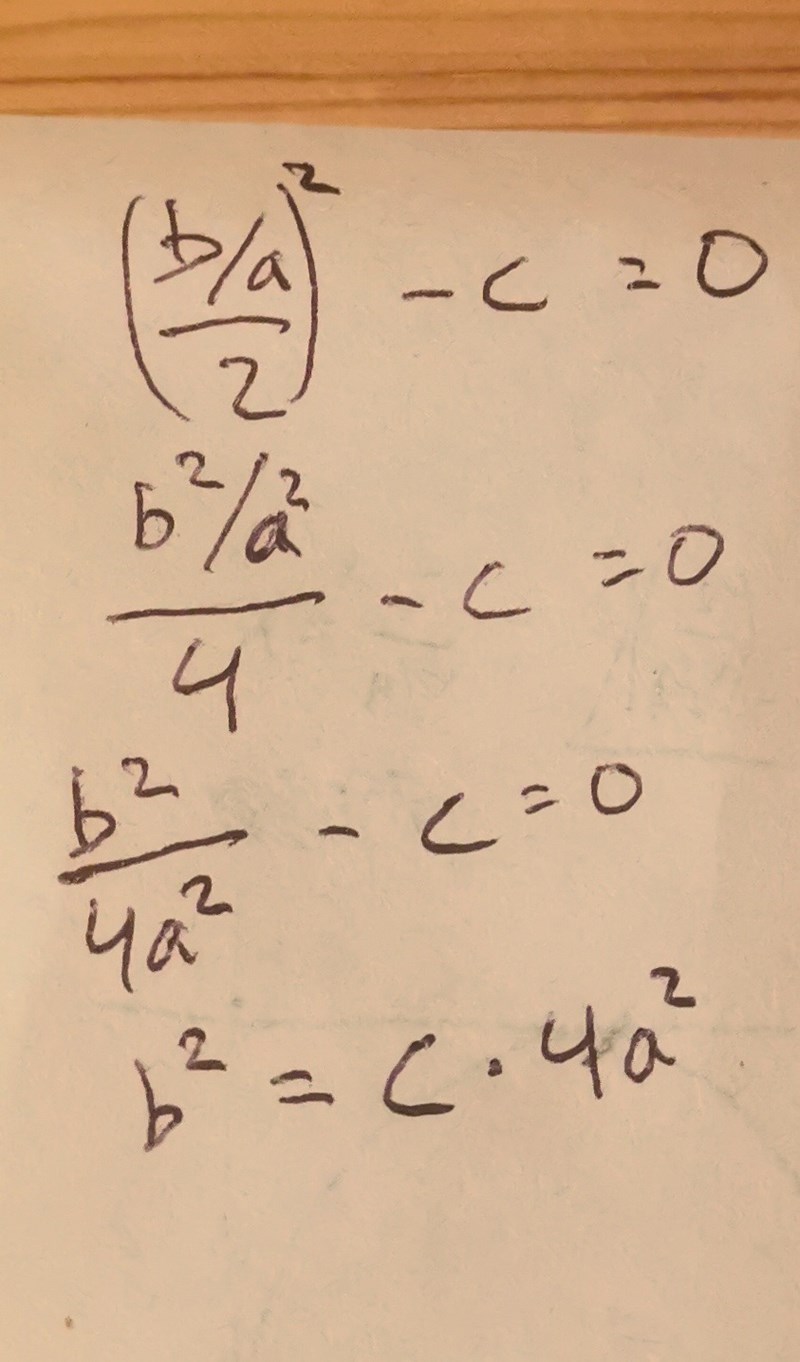 ((b/a)/2)² - c = 0
(b²/a²)/4 - c = 0
b²/4a² - c = 0
b² = c · 4a²